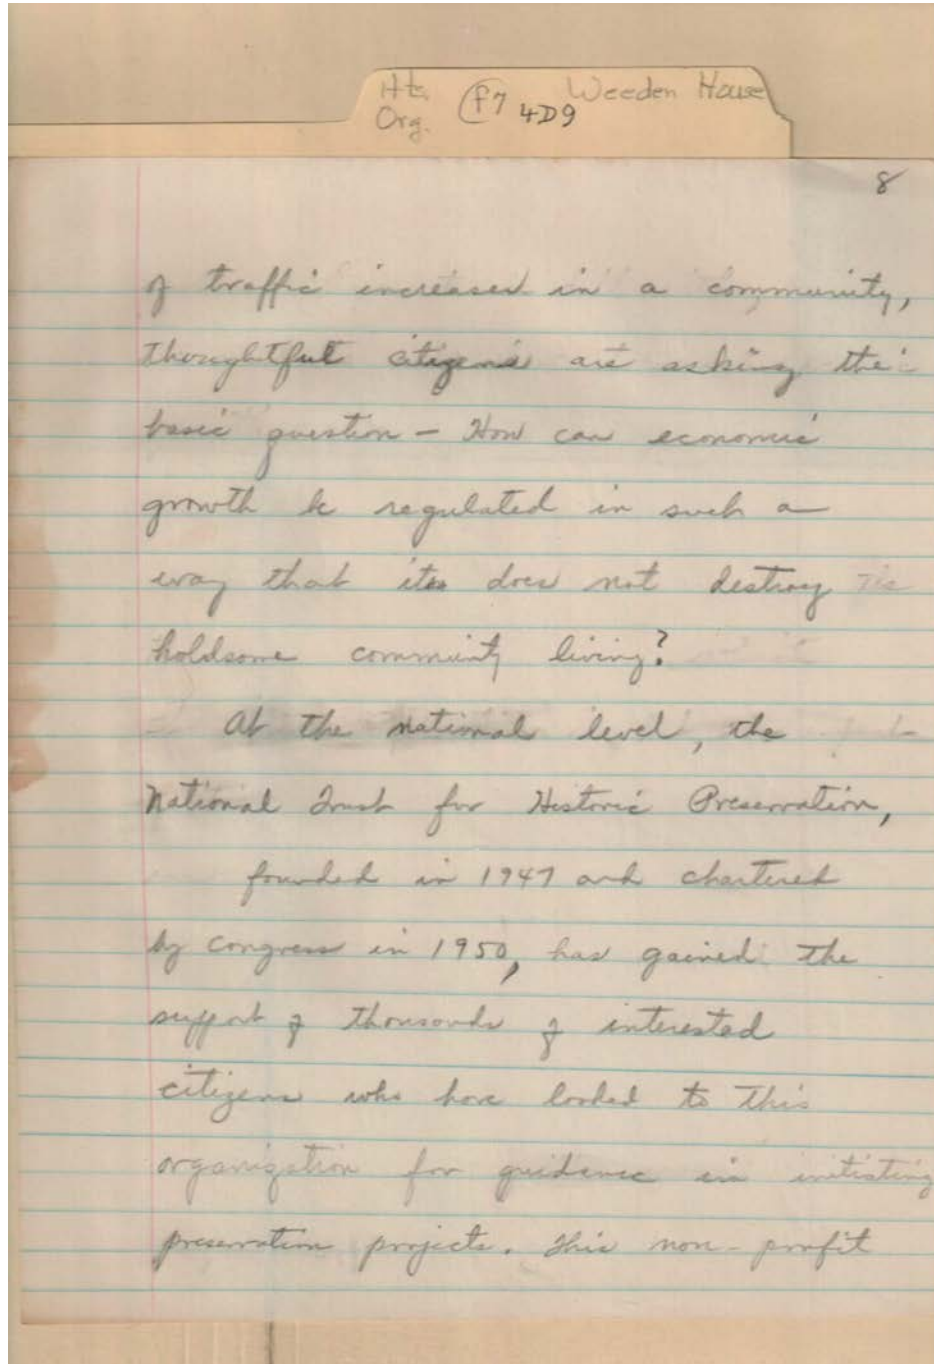 Hts. Weeden House
Org. f7 4D9
8
of traffic increases in a community,
thoughtful citizens are asking the
basic question – How can economic
growth be regulated in such a
way that it does not destroy
holdsome community living?
At the national level, the
National Trust for Historic Preservation,
founded in 1947 and chartered
by congress in 1950, has gained the
support of thousands of interested
citizens who have looked to this
organization for guidance in initiating
preservation projects. This non-profit